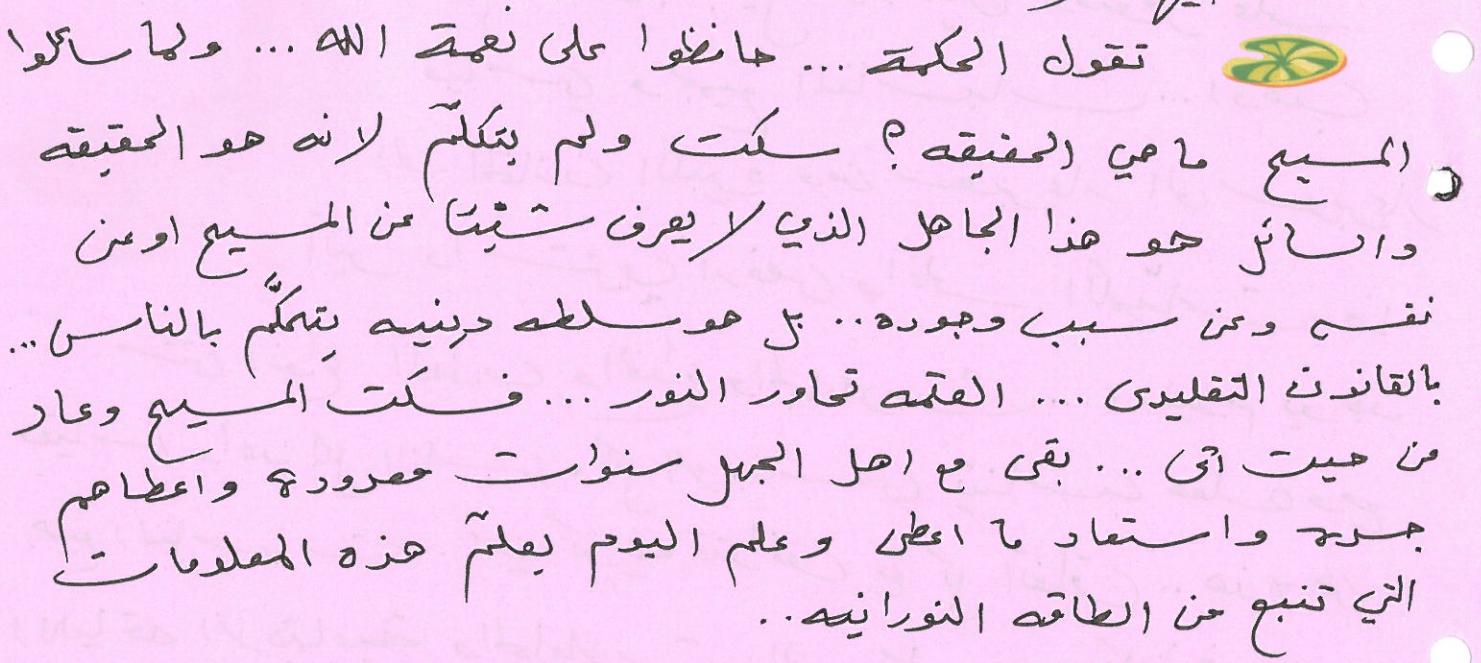 تقول الحكمة ... حافظوا على نعمة الله ... ولما سائلوا
المسيح ما هي الحقيقه؟ سكت ولم يتكلّم لانه هو الحقيقه
والسائل هو هذا الجاهل الذي لا يعرف شيئا عن المسيح او عن
نفسه وعن سبب وجوده.. بل هو سلطه دينيه يتحكّم بالناس...
بالقانون التقليدى ... العتمه تحاور النور ... فسكت المسيح وعاد
من حيت اتى ... بقى مع اهل الجهل سنوات معدودة واعطاهم
جسده واستعاد ما اعطى وعلم اليوم يعلّم هذه المعلومات
التي تنبع من الطاقه النورانيه..